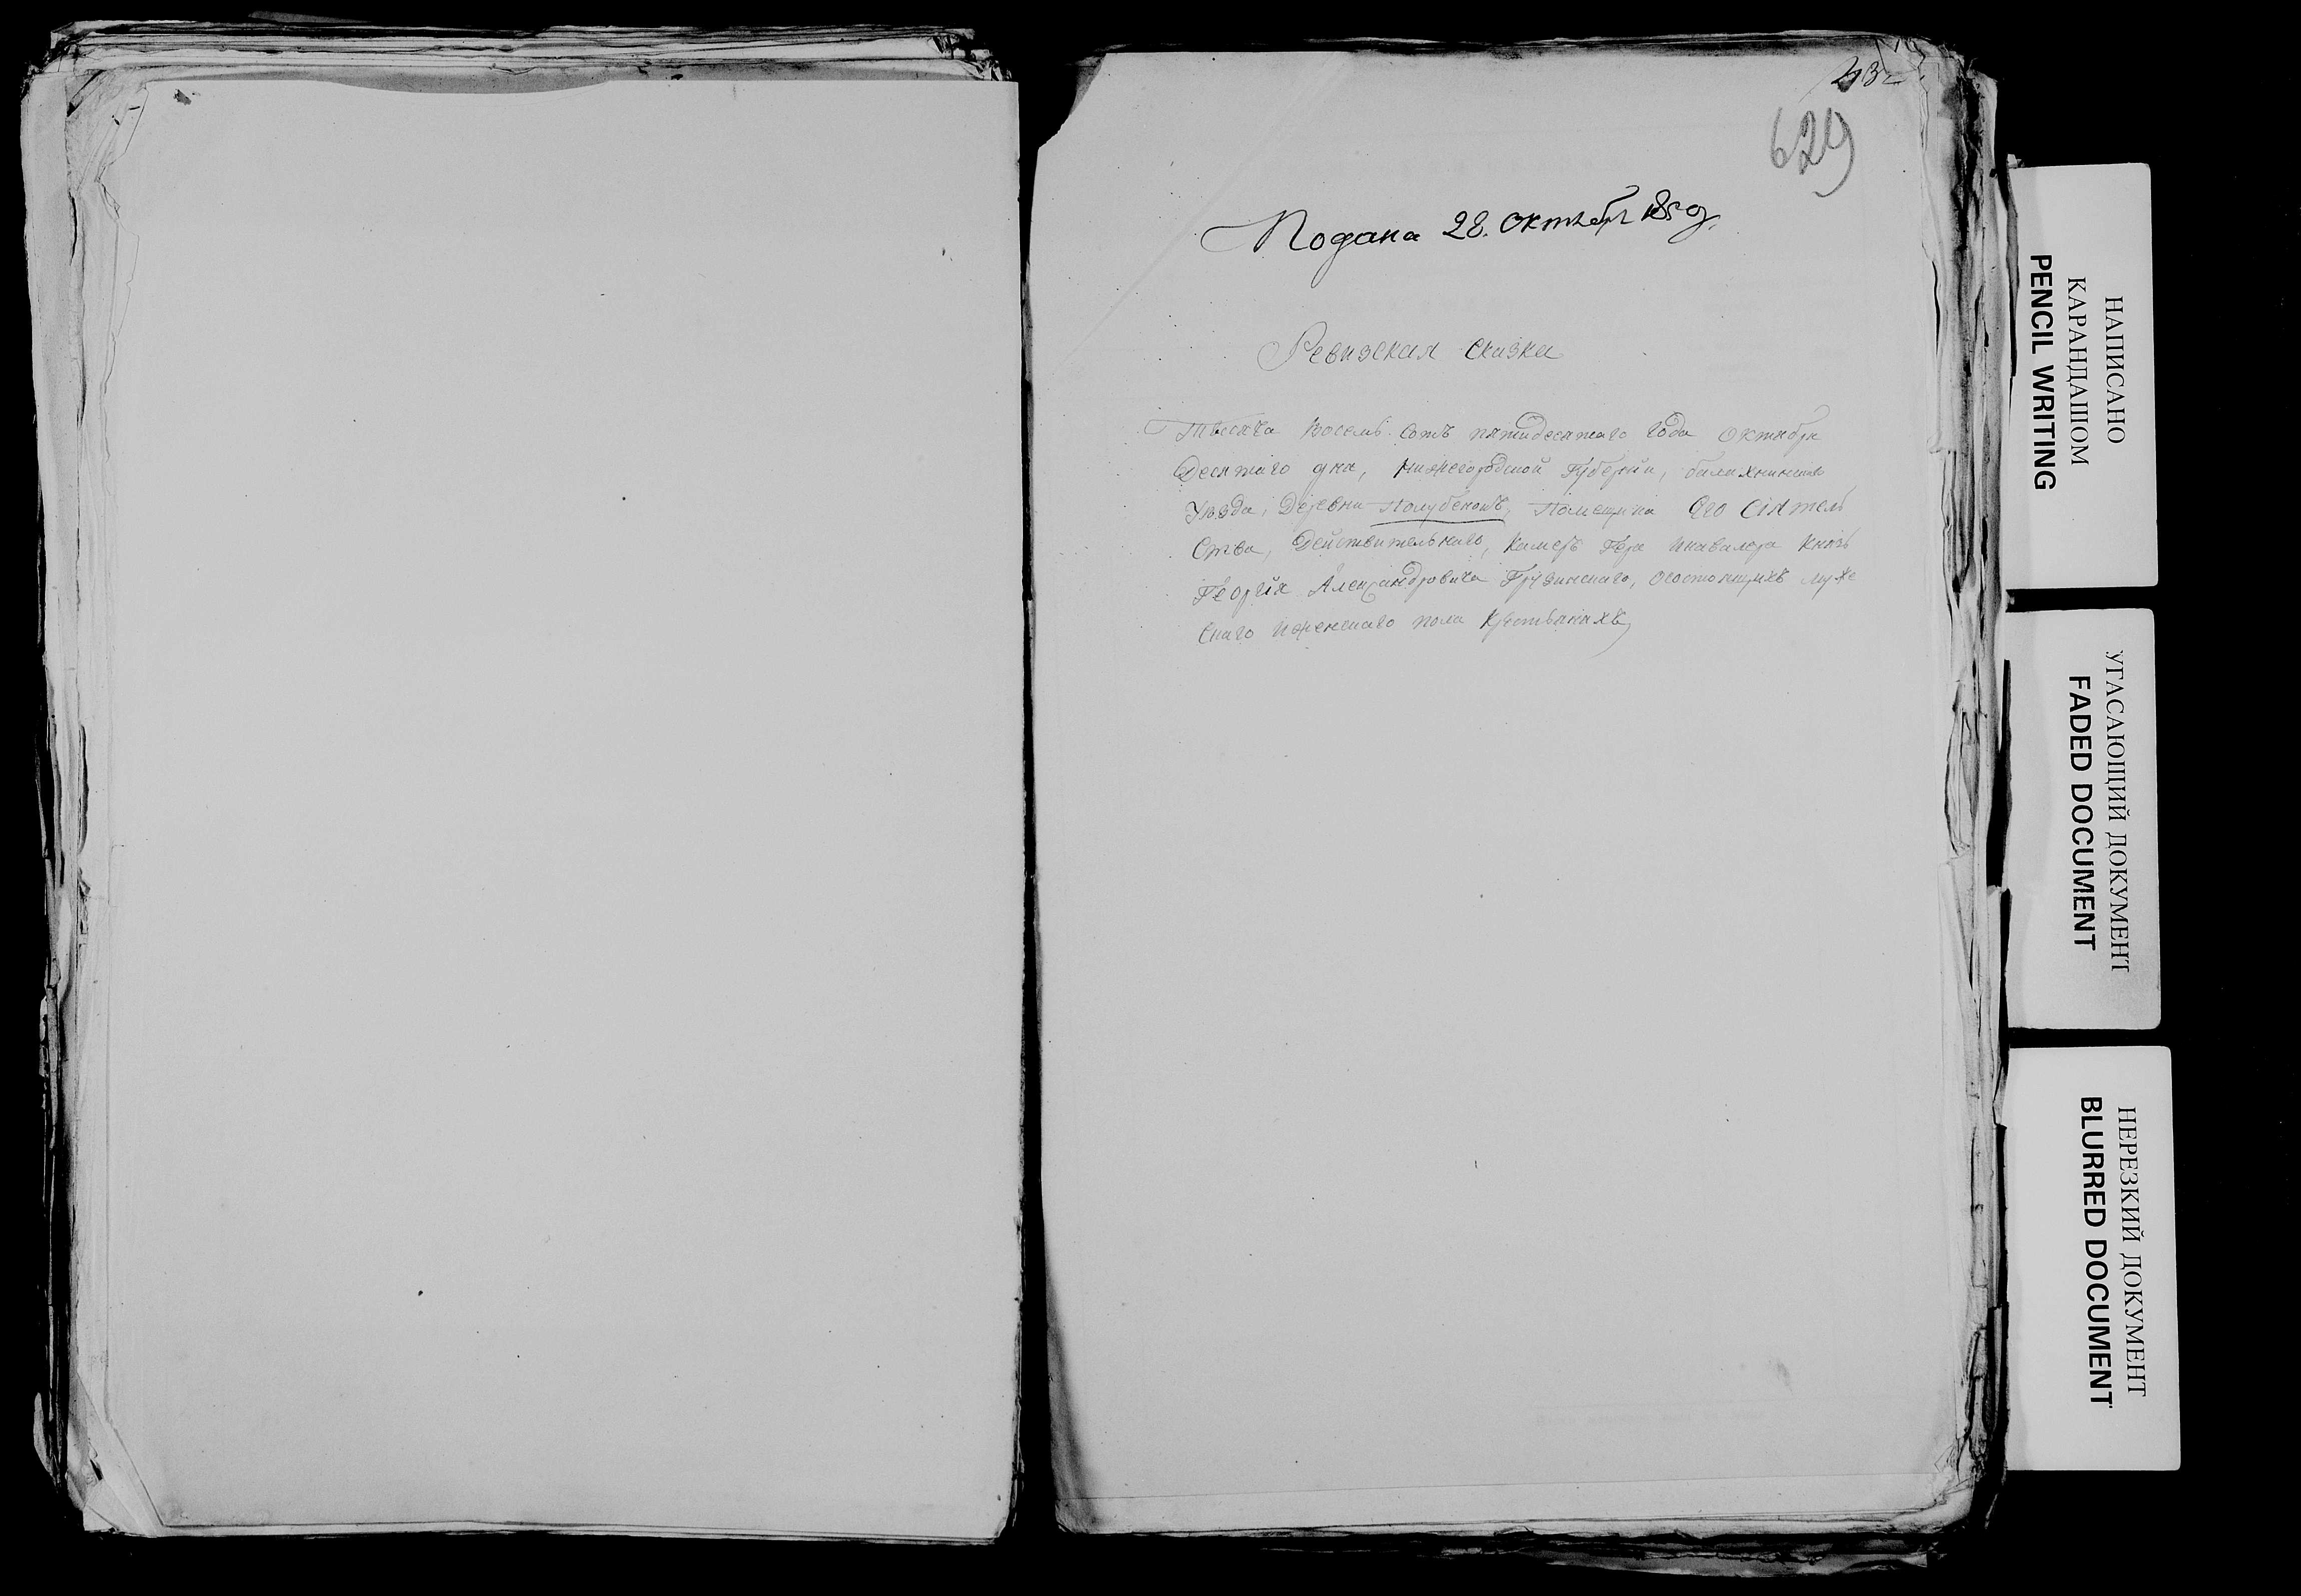 629
Подана 28. октябр 1850г.
Ревизская сказка
Тысяча Восемь сотъ пятидесятаго года октября
Десятаго дня, Нижегородской Губерніи, балахнинскаго
Уѣзда, Деревни Полубеновъ, Помещика Его Сіятель
Ства, Действительнаго, Камеръ Гера икавалера Князь
Георгія Александровича Грузинскаго, осостоящихъ муже
Скаго иженскаго пола Крестьянахъ,
НАПИСАНО
КАРАНДАШОМ
PENCIL WRITING
УГАСАЮЩИЙ ДОКУМЕНТ
FADED DOCUMENT
НЕРЕЗКИЙ ДОКУМЕНТ
BLURRED DOCUMENT